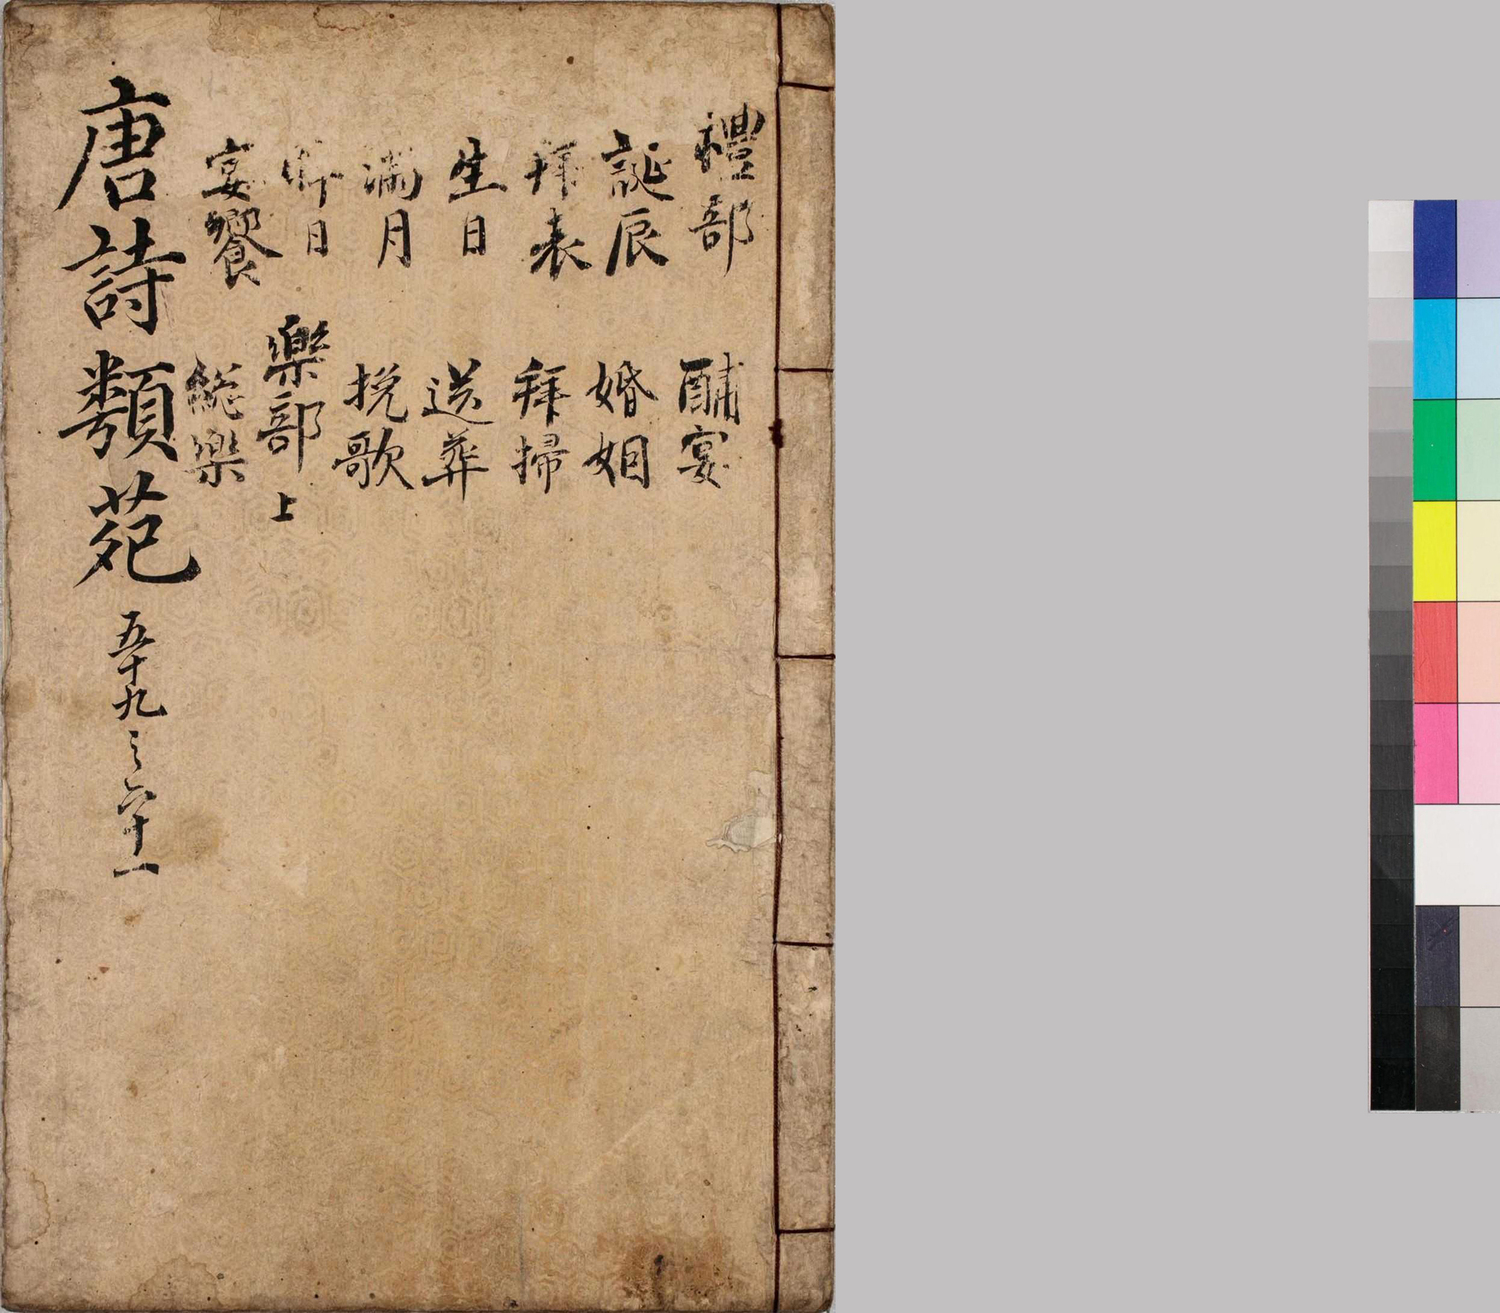 禮部
誕辰
拜表
生日
滿月
晬日
宴饗
酺宴
婚姻
拜掃
送葬
挽歌
樂部上
總樂
唐詩類苑 五十九之六十一